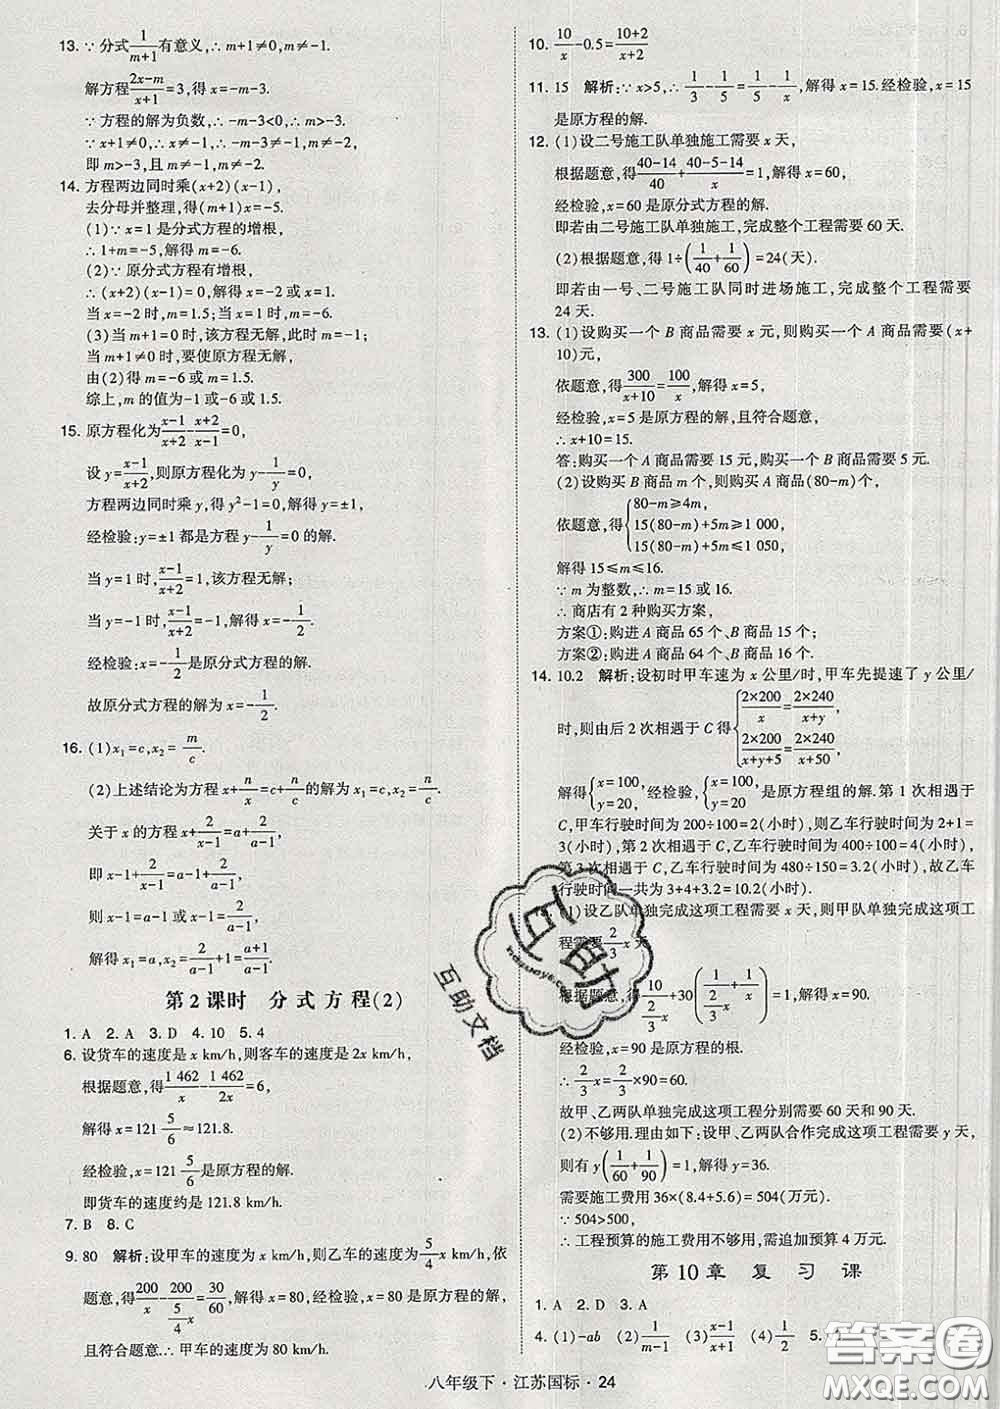 13. ∵ 分式1/(m+1)有意义,∴ m+1≠0,m≠-1.
解方程(2x-m)/(x+1)=3,得x=-m-3.
∵ 方程的解为负数,∴ -m-3<0,∴ m>-3.
∵ x+1≠0,∴ x≠-1,∴ -m-3≠-1,m≠-2,
即 m>-3,且 m≠-1,m≠-2.
14. 方程两边同时乘(x+2)(x-1),
去分母并整理,得(m+1)x=-5.
(1)∵ x=1 是分式方程的增根,
∴ 1+m=-5,解得 m=-6.
(2)∵ 原分式方程有增根,
∴ (x+2)(x-1)=0,解得 x=-2或x=1.
当 x=-2 时,m=1.5;当 x=1 时,m=-6.
(3)当 m+1=0 时,该方程无解,此时 m=-1.
当 m+1≠0 时,要使原方程无解,
由(2)得 m=-6或m=1.5.
综上,m 的值为-1 或-6 或 1.5.
15. 原方程化为(x-1)/(x+2)-(x+2)/(x-1)=0,
设 y=(x-1)/(x+2),则原方程化为 y-1/y=0,
方程两边同时乘 y,得 y²-1=0,解得 y=±1,
经检验:y=±1 都是方程 y-1/y=0 的解.
当 y=1 时,(x-1)/(x+2)=1,该方程无解;
当 y=-1 时,(x-1)/(x+2)=-1,解得 x=-1/2.
经检验:x=-1/2是原分式方程的解,
故原分式方程的解为 x=-1/2.
16. (1)x₁=c,x₂=m/c.
(2)上述结论为方程 x+n/x=c+n/c的解为 x₁=c,x₂=n/c.
关于 x 的方程 x+2/(x-1)=a+2/(a-1),
即 x-1+2/(x-1)=a-1+2/(a-1),
则 x-1=a-1 或 x-1=2/(a-1),
解得 x₁=a,x₂=2/(a-1)+1=(a+1)/(a-1).
第 2 课时 分式方程(2)
1. A 2. A 3. D 4. 10 5. 4
6. 设货车的速度是 x km/h,则客车的速度是 2x km/h,
根据题意,得1 462/x-1 462/2x=6,
解得 x=121 5/6≈121.8.
经检验,x=121 5/6是原方程的解.
即货车的速度约是 121.8 km/h.
7. B 8. C
9. 80 解析:设甲车的速度为 x km/h,则乙车的速度为5/4 x km/h,依
题意,得200/x-200/(5/4 x)=30/60,解得 x=80,经检验,x=80 是原方程的解,
且符合题意.∴ 甲车的速度为 80 km/h.
10. 10/x-0.5=(10+2)/(x+2)
11. 15 解析:∵ x>5,∴ 1/3-1/5=1/5-1/x,解得 x=15.经检验,x=15
是原方程的解.
12. (1)设二号施工队单独施工需要 x 天,
根据题意,得(40-14)/40+(40-5-14)/x=1,解得 x=60,
经检验,x=60 是原分式方程的解.
即若由二号施工队单独施工,完成整个工程需要 60 天.
(2)根据题意,得 1÷(1/40+1/60)=24(天).
即若由一号、二号施工队同时进场施工,完成整个工程需要
24 天.
13. (1)设购买一个 B 商品需要 x 元,则购买一个 A 商品需要(x+
10)元,
依题意,得300/(x+10)=100/x,解得 x=5,
经检验,x=5 是原方程的解,且符合题意,
∴ x+10=15.
答:购买一个 A 商品需要 15 元,购买一个 B 商品需要 5 元.
(2)设购买 B 商品 m 个,则购买 A 商品(80-m)个,
依题意,得{80-m≥4m, 15(80-m)+5m≥1 000, 15(80-m)+5m≤1 050,
解得 15≤m≤16.
∵ m 为整数,∴ m=15 或 16.
∴ 商店有 2 种购买方案,
方案①:购进 A 商品 65 个、B 商品 15 个;
方案②:购进 A 商品 64 个、B 商品 16 个.
14. 10.2 解析:设初时甲车速为 x 公里/时,甲车先提速了 y 公里/
时,则由后 2 次相遇于 C 得{(2×200)/x=(2×240)/(x+y), (2×200)/(x+y+5)=(2×240)/(x+50)
解得{x=100, y=20,经检验,{x=100, y=20是原方程组的解.第 1 次相遇于
C,甲车行驶时间为 200÷100=2(小时),则乙车行驶时间为 2+1=
3(小时),第 2 次相遇于 C,乙车行驶时间为 400÷100=4(小时),
第 3 次相遇于 C,乙车行驶时间为 480÷150=3.2(小时),故乙车
行驶时间一共为 3+4+3.2=10.2(小时).
(1)设乙队单独完成这项工程需要 x 天,则甲队单独完成这项工
程需要2/3 x 天,
根据题意,得10/(2/3 x)+30(1/(2/3 x)+1/x)=1,解得 x=90.
经检验,x=90 是原方程的根.
∴ 2/3 x=2/3×90=60.
故甲、乙两队单独完成这项工程分别需要 60 天和 90 天.
(2)不够用.理由如下:设甲、乙两队合作完成这项工程需要 y 天,
则有 y(1/60+1/90)=1,解得 y=36.
需要施工费用 36×(8.4+5.6)=504(万元).
∵ 504>500,
∴ 工程预算的施工费用不够用,需追加预算 4 万元.
第 10 章 复 习 课
1. A 2. D 3. A
4. (1)-ab (2)1/(m-1) (3)(x-1)/(x+1) (4)1/2 5.
八年级下·江苏国标·24
互助
互助文档
答案圈
MXQE.COM